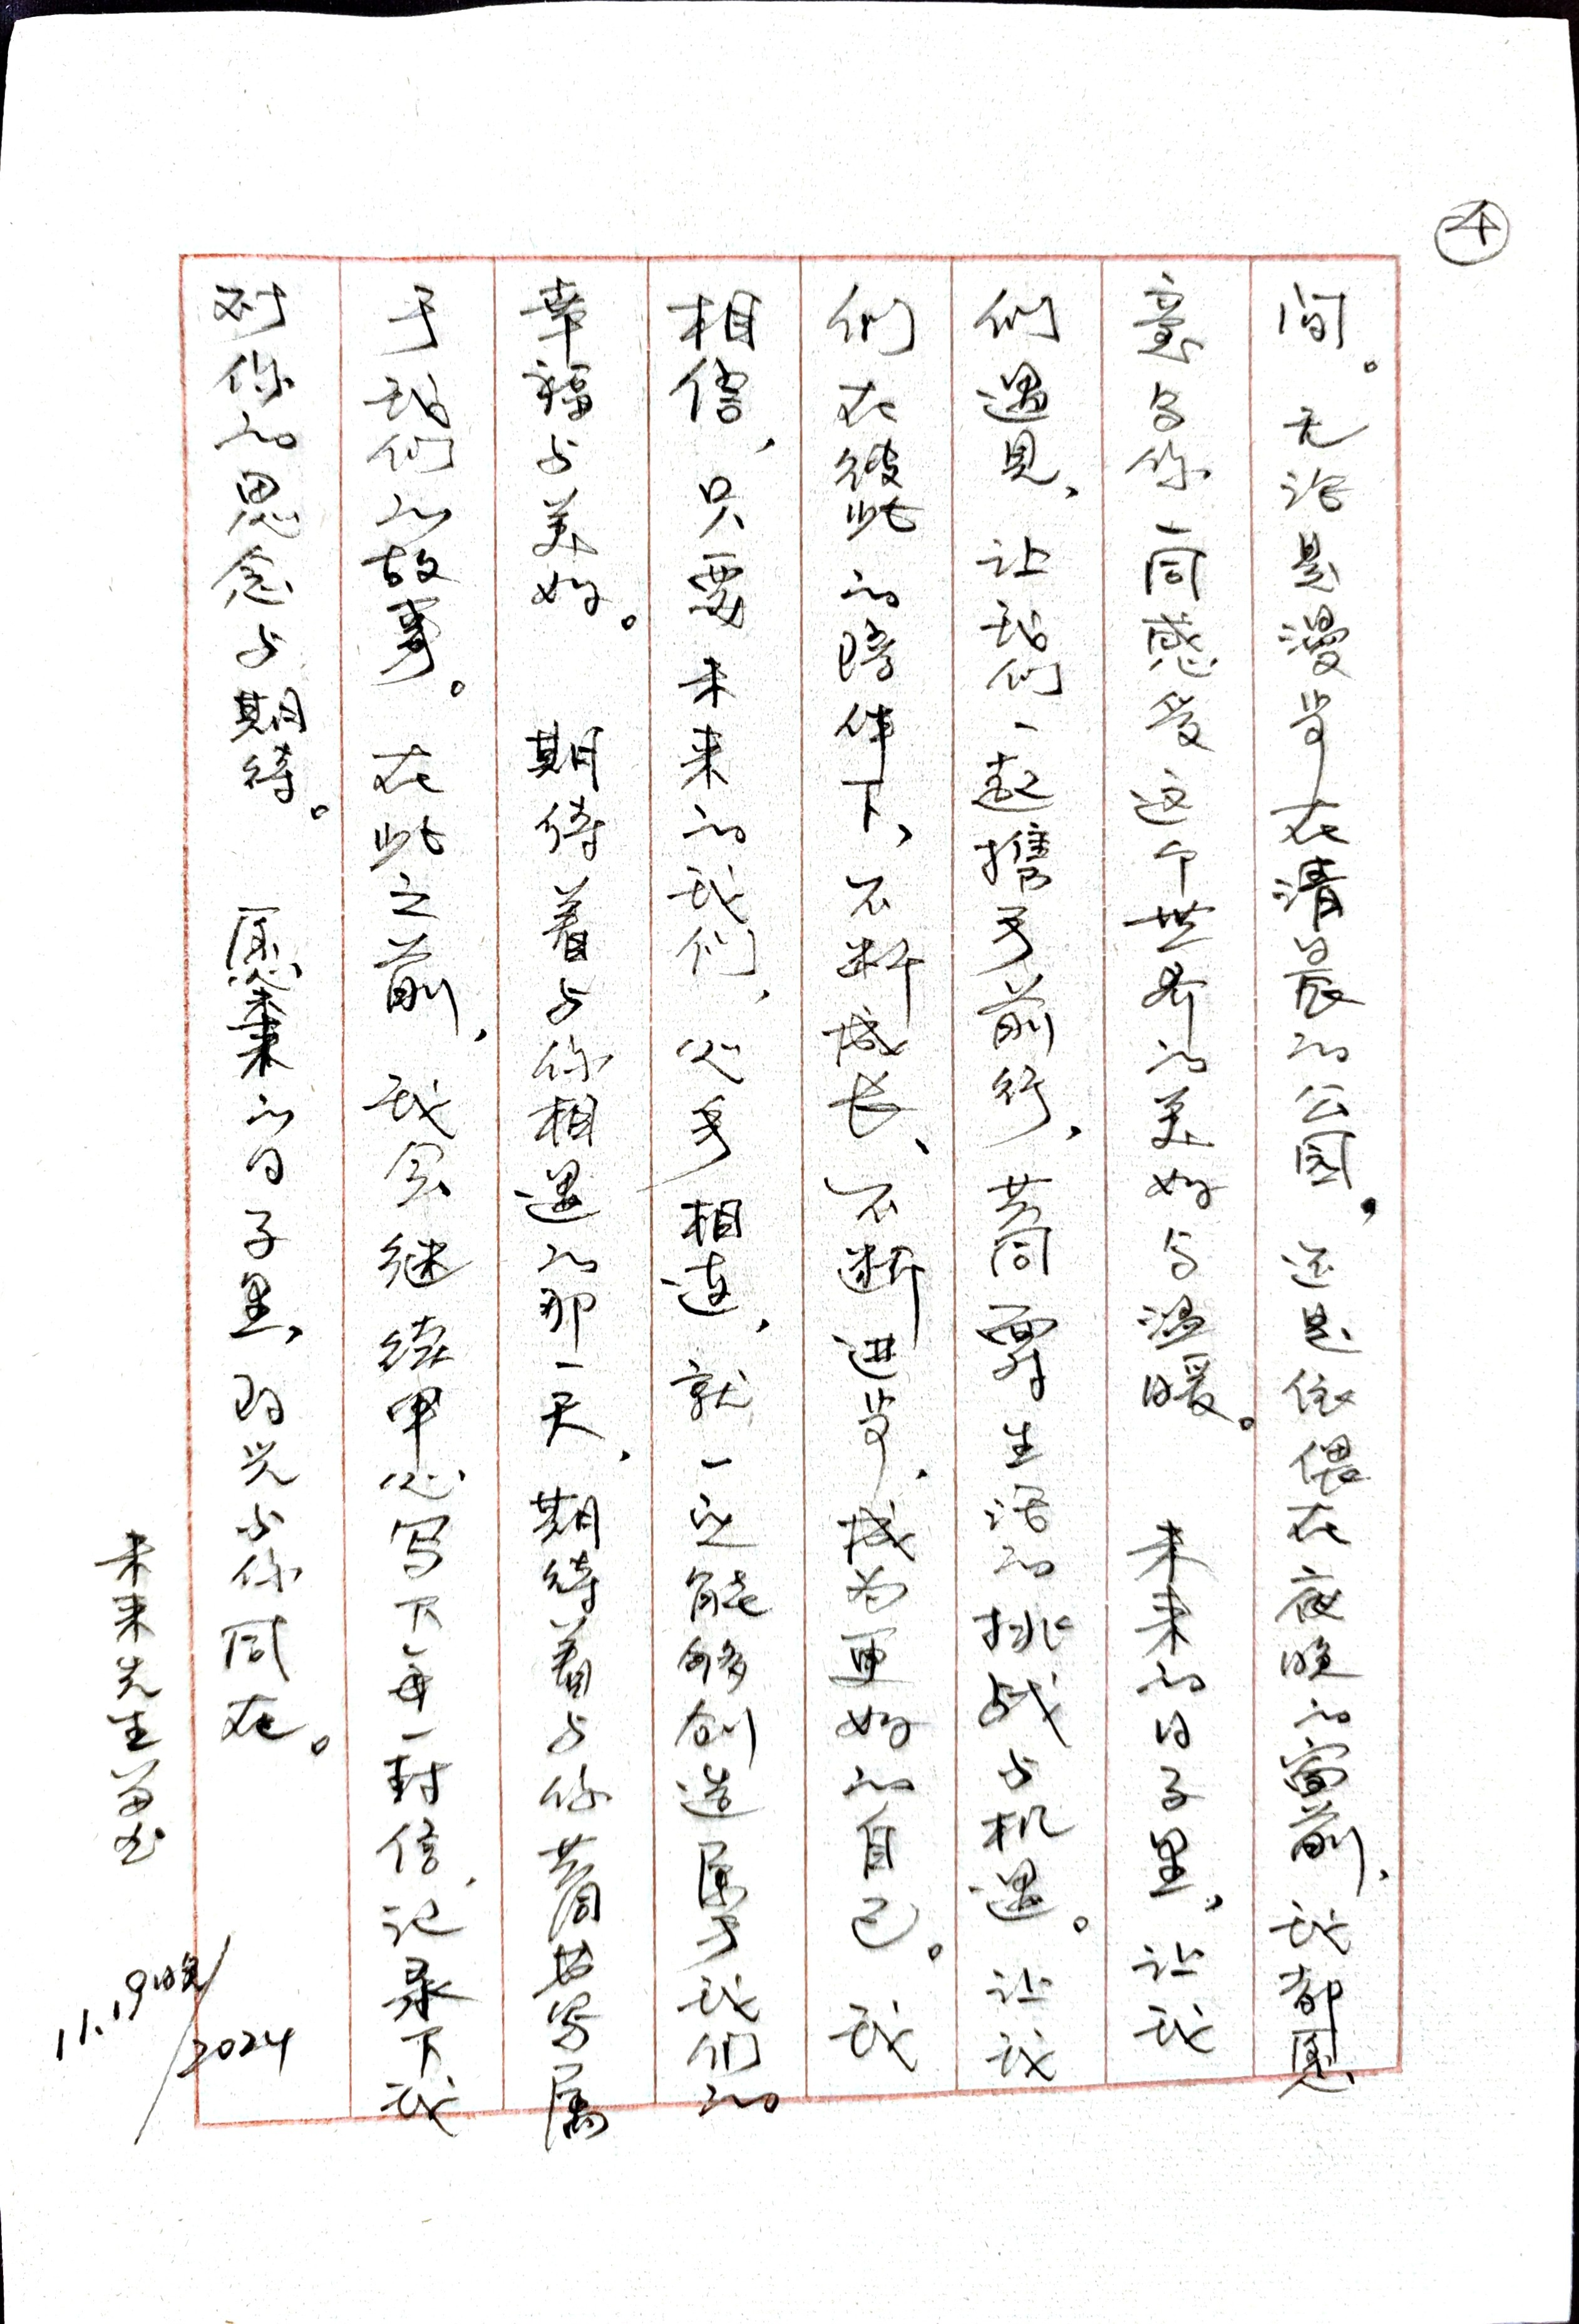 ④
间。无论是漫步在清晨的公园，还是依偎在夜晚的窗前，我都愿
意与你一同感受这个世界的美好与温暖。 未来的日子里，让我
们遇见，让我们一起携手前行，共同面对生活的挑战与机遇。让我
们在彼此的陪伴下，不断成长、不断进步，成为更好的自己。 我
相信，只要未来的我们，心手相连，就一定能够创造属于我们的
幸福与美好。 期待着与你相遇的那一天，期待着与你共同书写属
于我们的故事。在此之前，我会继续用心写下每一封信，记录下我
对你的思念与期待。 愿未来的日子里，时光与你同在。
未来先生
11.19晚/2024